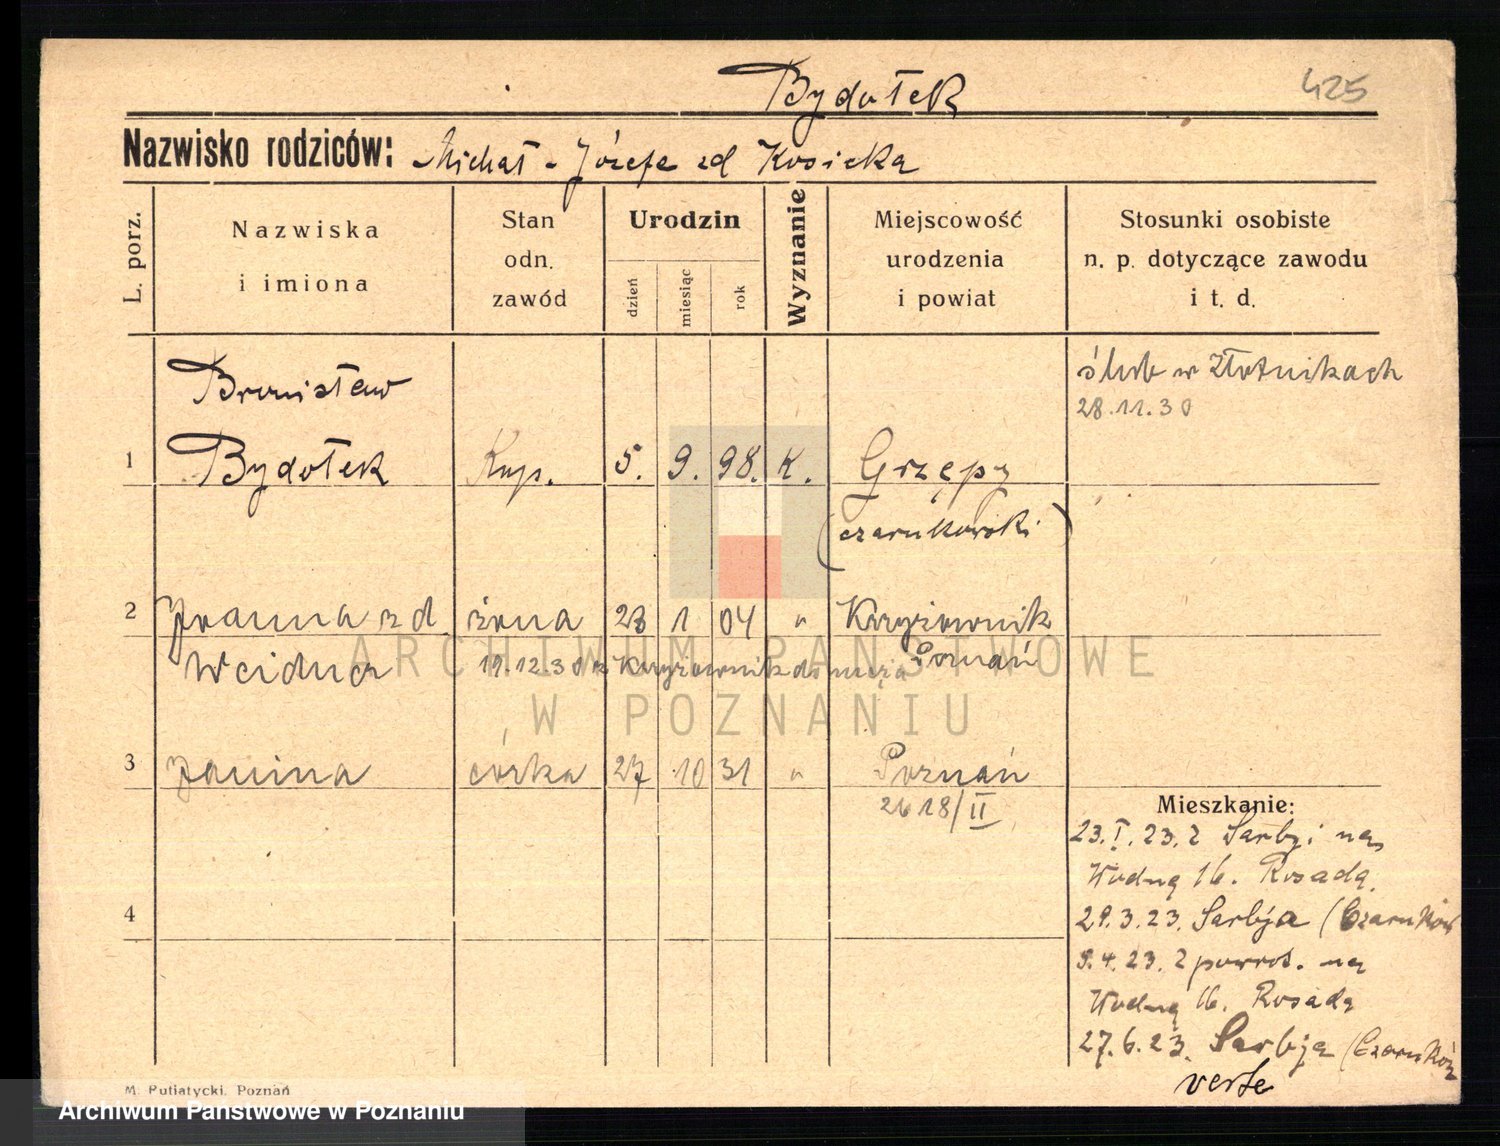 Bydołek
425
Nazwisko rodziców: Michał - Józefa zd Kosicka
L. porz.
Nazwiska
i imiona
Stan
odn.
zawód
Urodzin
dzień
miesiąc
rok
Wyznanie
Miejscowość
urodzenia
i powiat
Stosunki osobiste
n. p. dotyczące zawodu
i t. d.
ślub w Złotnikach
28.11.30
Bronisław
1 Bydołek Kup. 5. 9. 98. K. Grzępy
(czarnkowski)
2 Joanna zd żona 23 1 04 " Krzyżownik
Weidner 19.12.30 z Krzyżownik do męża Poznań
3 Janina córka 27 10 31 " Poznań
2618/II
4
Mieszkanie:
23.I.23. z Sarbji na
Wodną 16. Rosada
29.3.23. Sarbja (Czarnków
9.4.23. z powrot. na
Wodną 16. Rosada
27.6.23. Sarbja (Czarnków
verte
M. Putiatycki, Poznań
ARCHIWUM PAŃSTWOWE
W POZNANIU
Archiwum Państwowe w Poznaniu